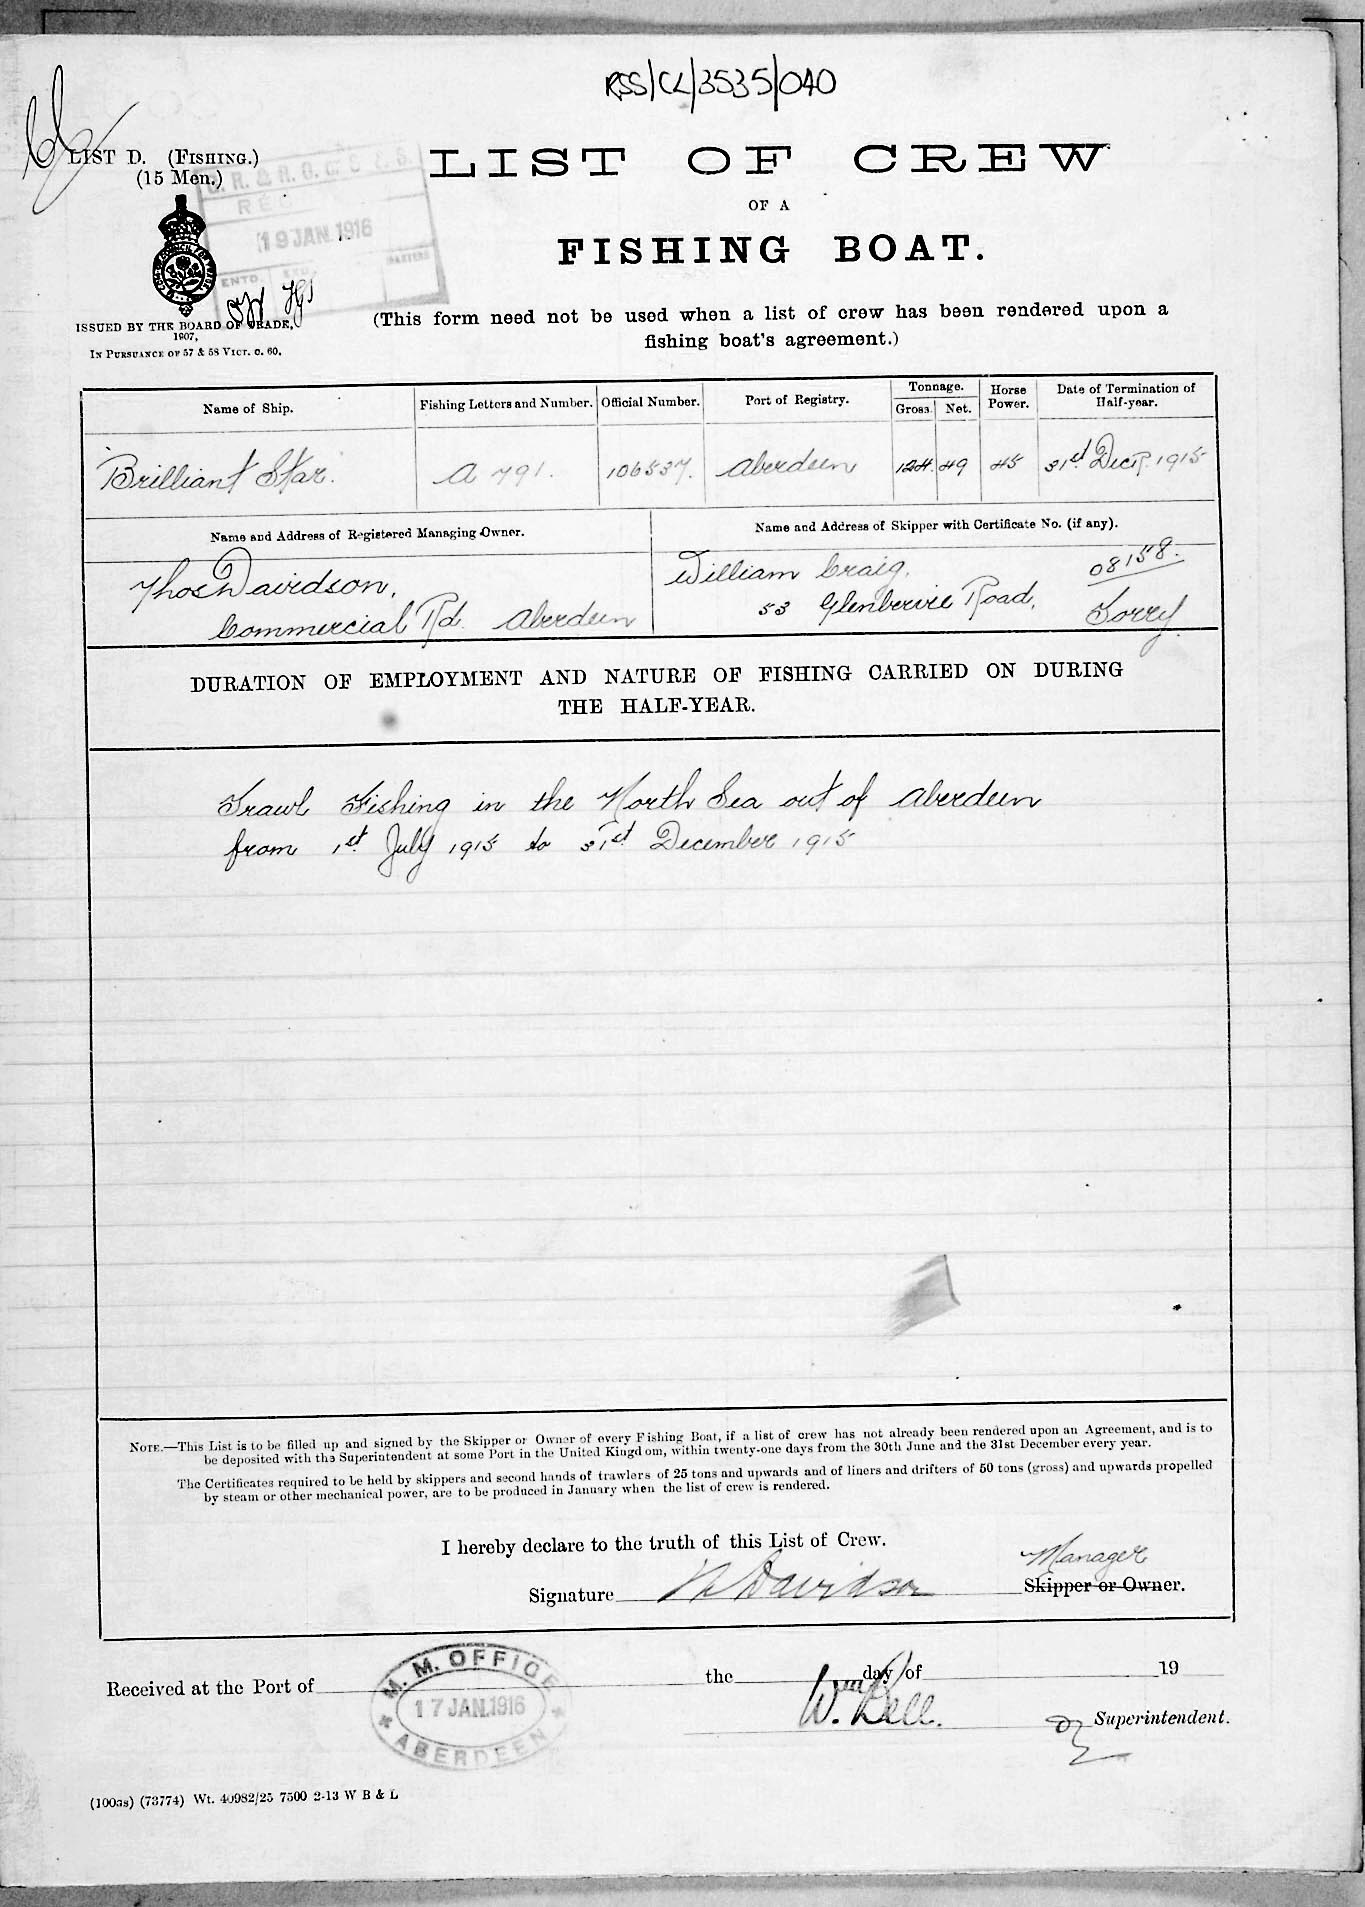 RSS/CL/3535/040
LIST D. (FISHING.)
(15 Men.)
LIST OF CREW
OF A
FISHING BOAT.
19 JAN. 1916
ENTD.
ISSUED BY THE BOARD OF TRADE,
1907,
IN PURSUANCE OF 57 & 58 VICT. C. 60.
(This form need not be used when a list of crew has been rendered upon a
fishing boat's agreement.)
Name of Ship. Fishing Letters and Number. Official Number. Port of Registry. Tonnage. Gross. Net. Horse Power. Date of Termination of Half-year.
Brilliant Star. A 791. 106537. Aberdeen 124. 49 45 31st Decr. 1915
Name and Address of Registered Managing Owner. Name and Address of Skipper with Certificate No. (if any).
Thos Davidson, William Craig, 08158.
Commercial Rd. Aberdeen 53 Glenbervie Road, Torry
DURATION OF EMPLOYMENT AND NATURE OF FISHING CARRIED ON DURING
THE HALF-YEAR.
Trawl Fishing in the North Sea out of Aberdeen
from 1st July 1915 to 31st December 1915
NOTE.—This List is to be filled up and signed by the Skipper or Owner of every Fishing Boat, if a list of crew has not already been rendered upon an Agreement, and is to
be deposited with the Superintendent at some Port in the United Kingdom, within twenty-one days from the 30th June and the 31st December every year.
The Certificates required to be held by skippers and second hands of trawlers of 25 tons and upwards and of liners and drifters of 50 tons (gross) and upwards propelled
by steam or other mechanical power, are to be produced in January when the list of crew is rendered.
I hereby declare to the truth of this List of Crew.
Manager
Signature Davidson Skipper or Owner.
Received at the Port of the day of 19
M. M. OFFICE
17 JAN. 1916
ABERDEEN
W. Bell. Superintendent.
(73774) Wt. 40982/25 7500 2-13 W B & L